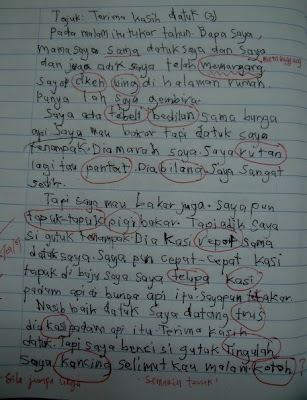 Tajuk: Terima kasih datuk (3)
Pada malam itu tukar tahun. Bapa saya,
mama saya sama datuk saya dan saya
dan juga adik saya telah memanggang
sayap ciken wing di halaman rumah.
Punya lah saya gembira.
Saya ada tebeli bedilan sama bunga
api. Saya mau bakar tapi datuk saya
tenampak. Dia marah saya. Saya rutan
lagi tau pantat. Dia bilang saya sangat
Tapi saya mau bakar juga. Saya pun
tapuk-tapuk pigi bakar. Tapi adik saya
si gutuk tenampak. Dia kasi repot sama
datuk saya. Saya pun cepat-cepat kasi
tapuk di baju saya. Saya telupa kasi
padam api di bunga api itu. Saya pun tebakar
Nasib baik datuk saya datang trus
dia kasi padam api itu. Terima kasih
datuk. Tapi saya benci si gutuk. Tingulah
saya kancing selimut kau malam kotoh?
Sila jumpa cikgu